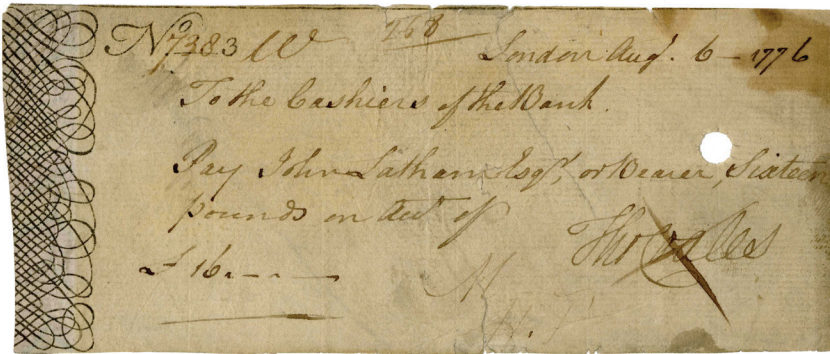 No 7383 W 268 London Augt. 6 - 1776
To the Cashiers of the Bank.
Pay John Latham Esqr, or Bearer, Sixteen
pounds on Acct of
£ 16 - - -